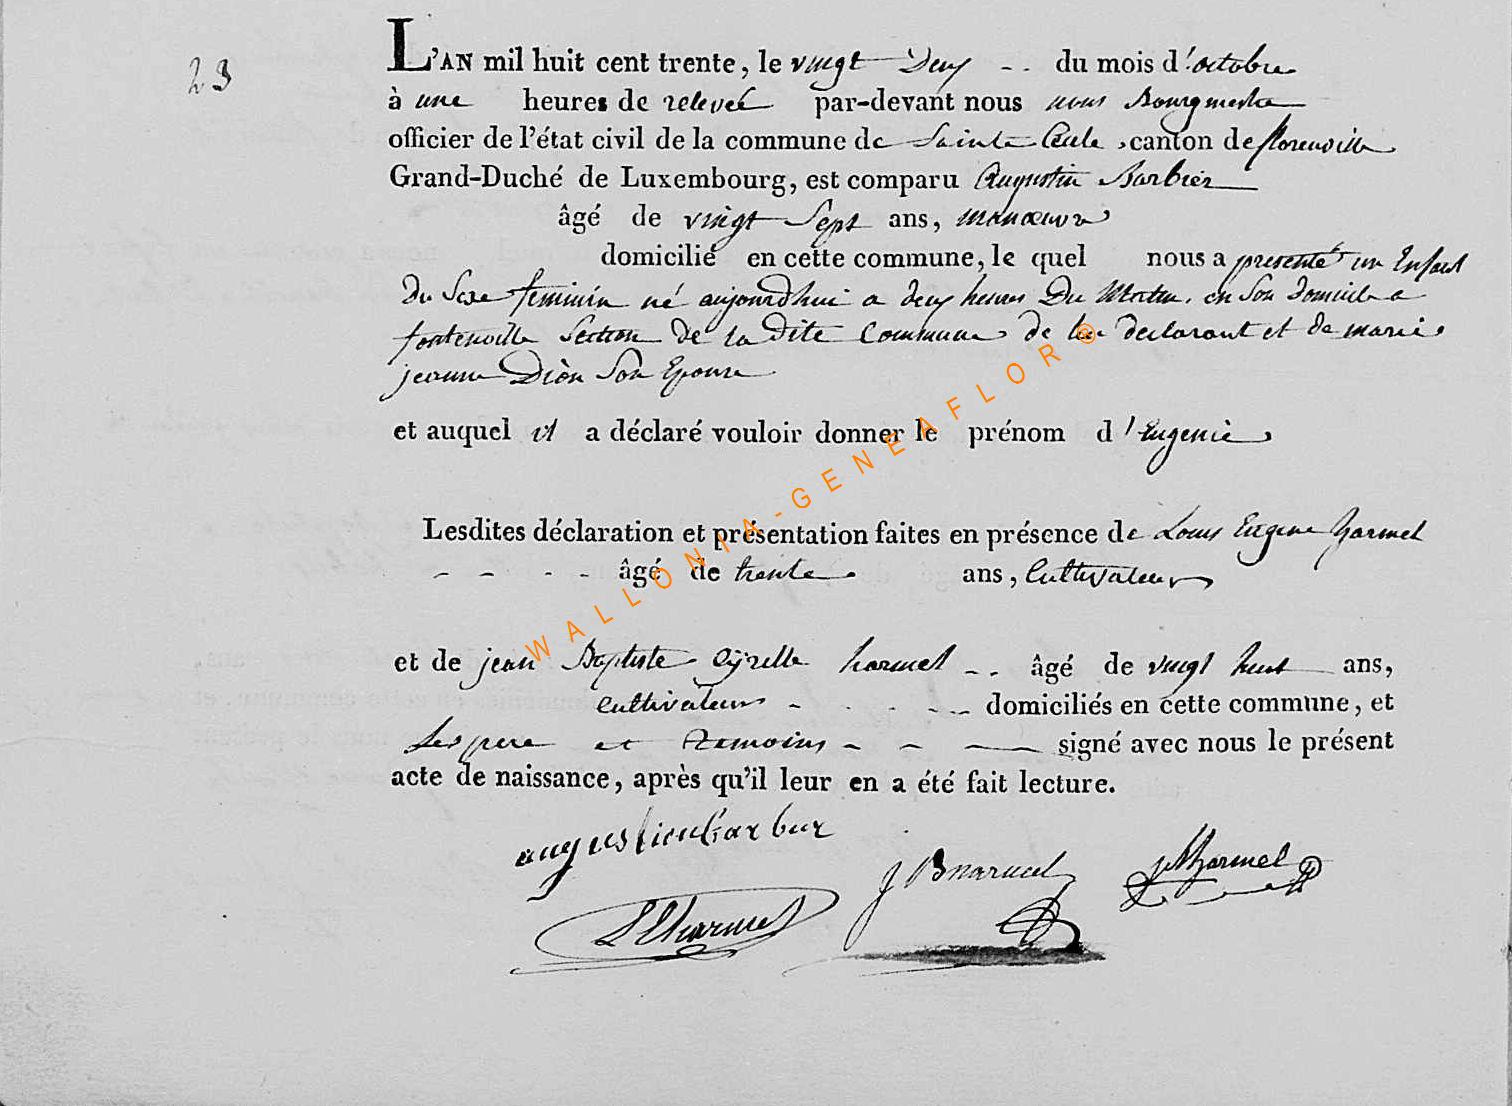 23
L'AN mil huit cent trente, le vingt Deux -- du mois d'octobre
à une heures de relevée par-devant nous nous Bourgmestre
officier de l'état civil de la commune de Sainte Cecile, canton de florenville
Grand-Duché de Luxembourg, est comparu Augustin Barbier
âgé de vingt Sept ans, manœuvre
domicilié en cette commune, le quel nous a presenté un Enfant
Du Sexe feminin né aujourdhui a deux heures Du Matin, en Son domicile a
fontenoille Section de la Dite Commune de lui declarant et de marie
jeanne Dion Son Epouse
et auquel il a déclaré vouloir donner le prénom d'Eugenie
Lesdites déclaration et présentation faites en présence de Louis Eugene harmel
- - - - âgé de trente ans, Cultivateur
et de jean Baptiste Cyrille harmel -- âgé de vingt huit ans,
cultivateur - - - - - domiciliés en cette commune, et
Les pere et temoins - - - signé avec nous le présent
acte de naissance, après qu'il leur en a été fait lecture.
augustien barbier
J B harmel
harmel
L E harmel
WALLONIA-GENEAFLOR ©